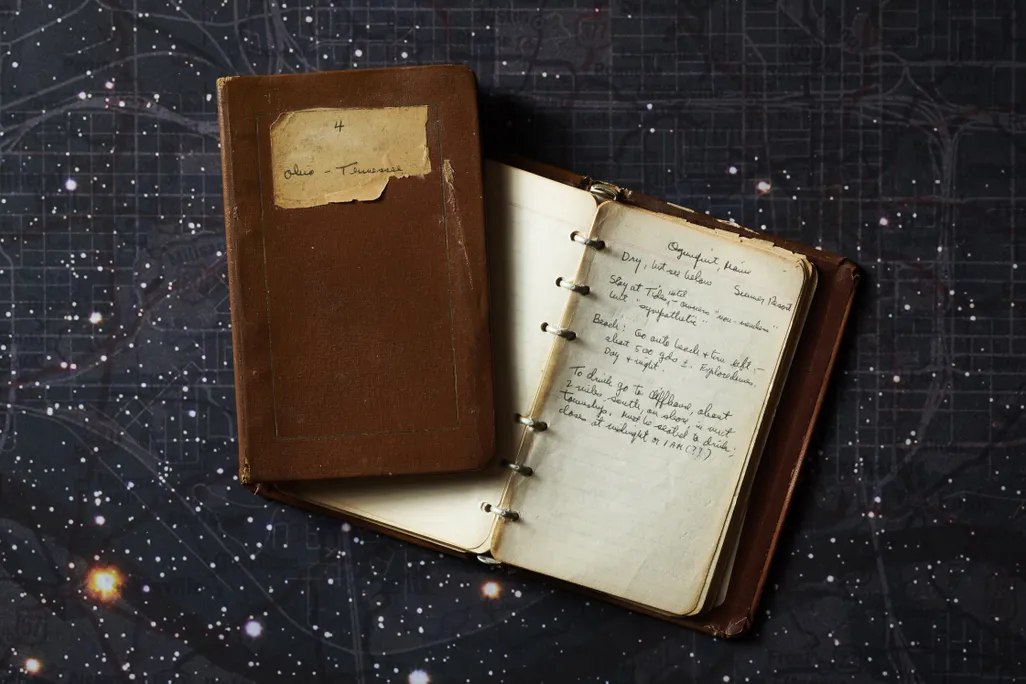 4
Ohio - Tennessee
Ogunquit, Maine
Dry, but see below Summer Resort
Stay at Tides Hotel - owners "non-
but "sympathetic"
Beach: Go onto beach & turn left, -
about 500 yds ±. Explore dunes,
Day & night.
To drink go to Cliffhouse, about
2 miles south, on shore, in next
township. Must be seated to drink;
closes at midnight or 1 AM (??)